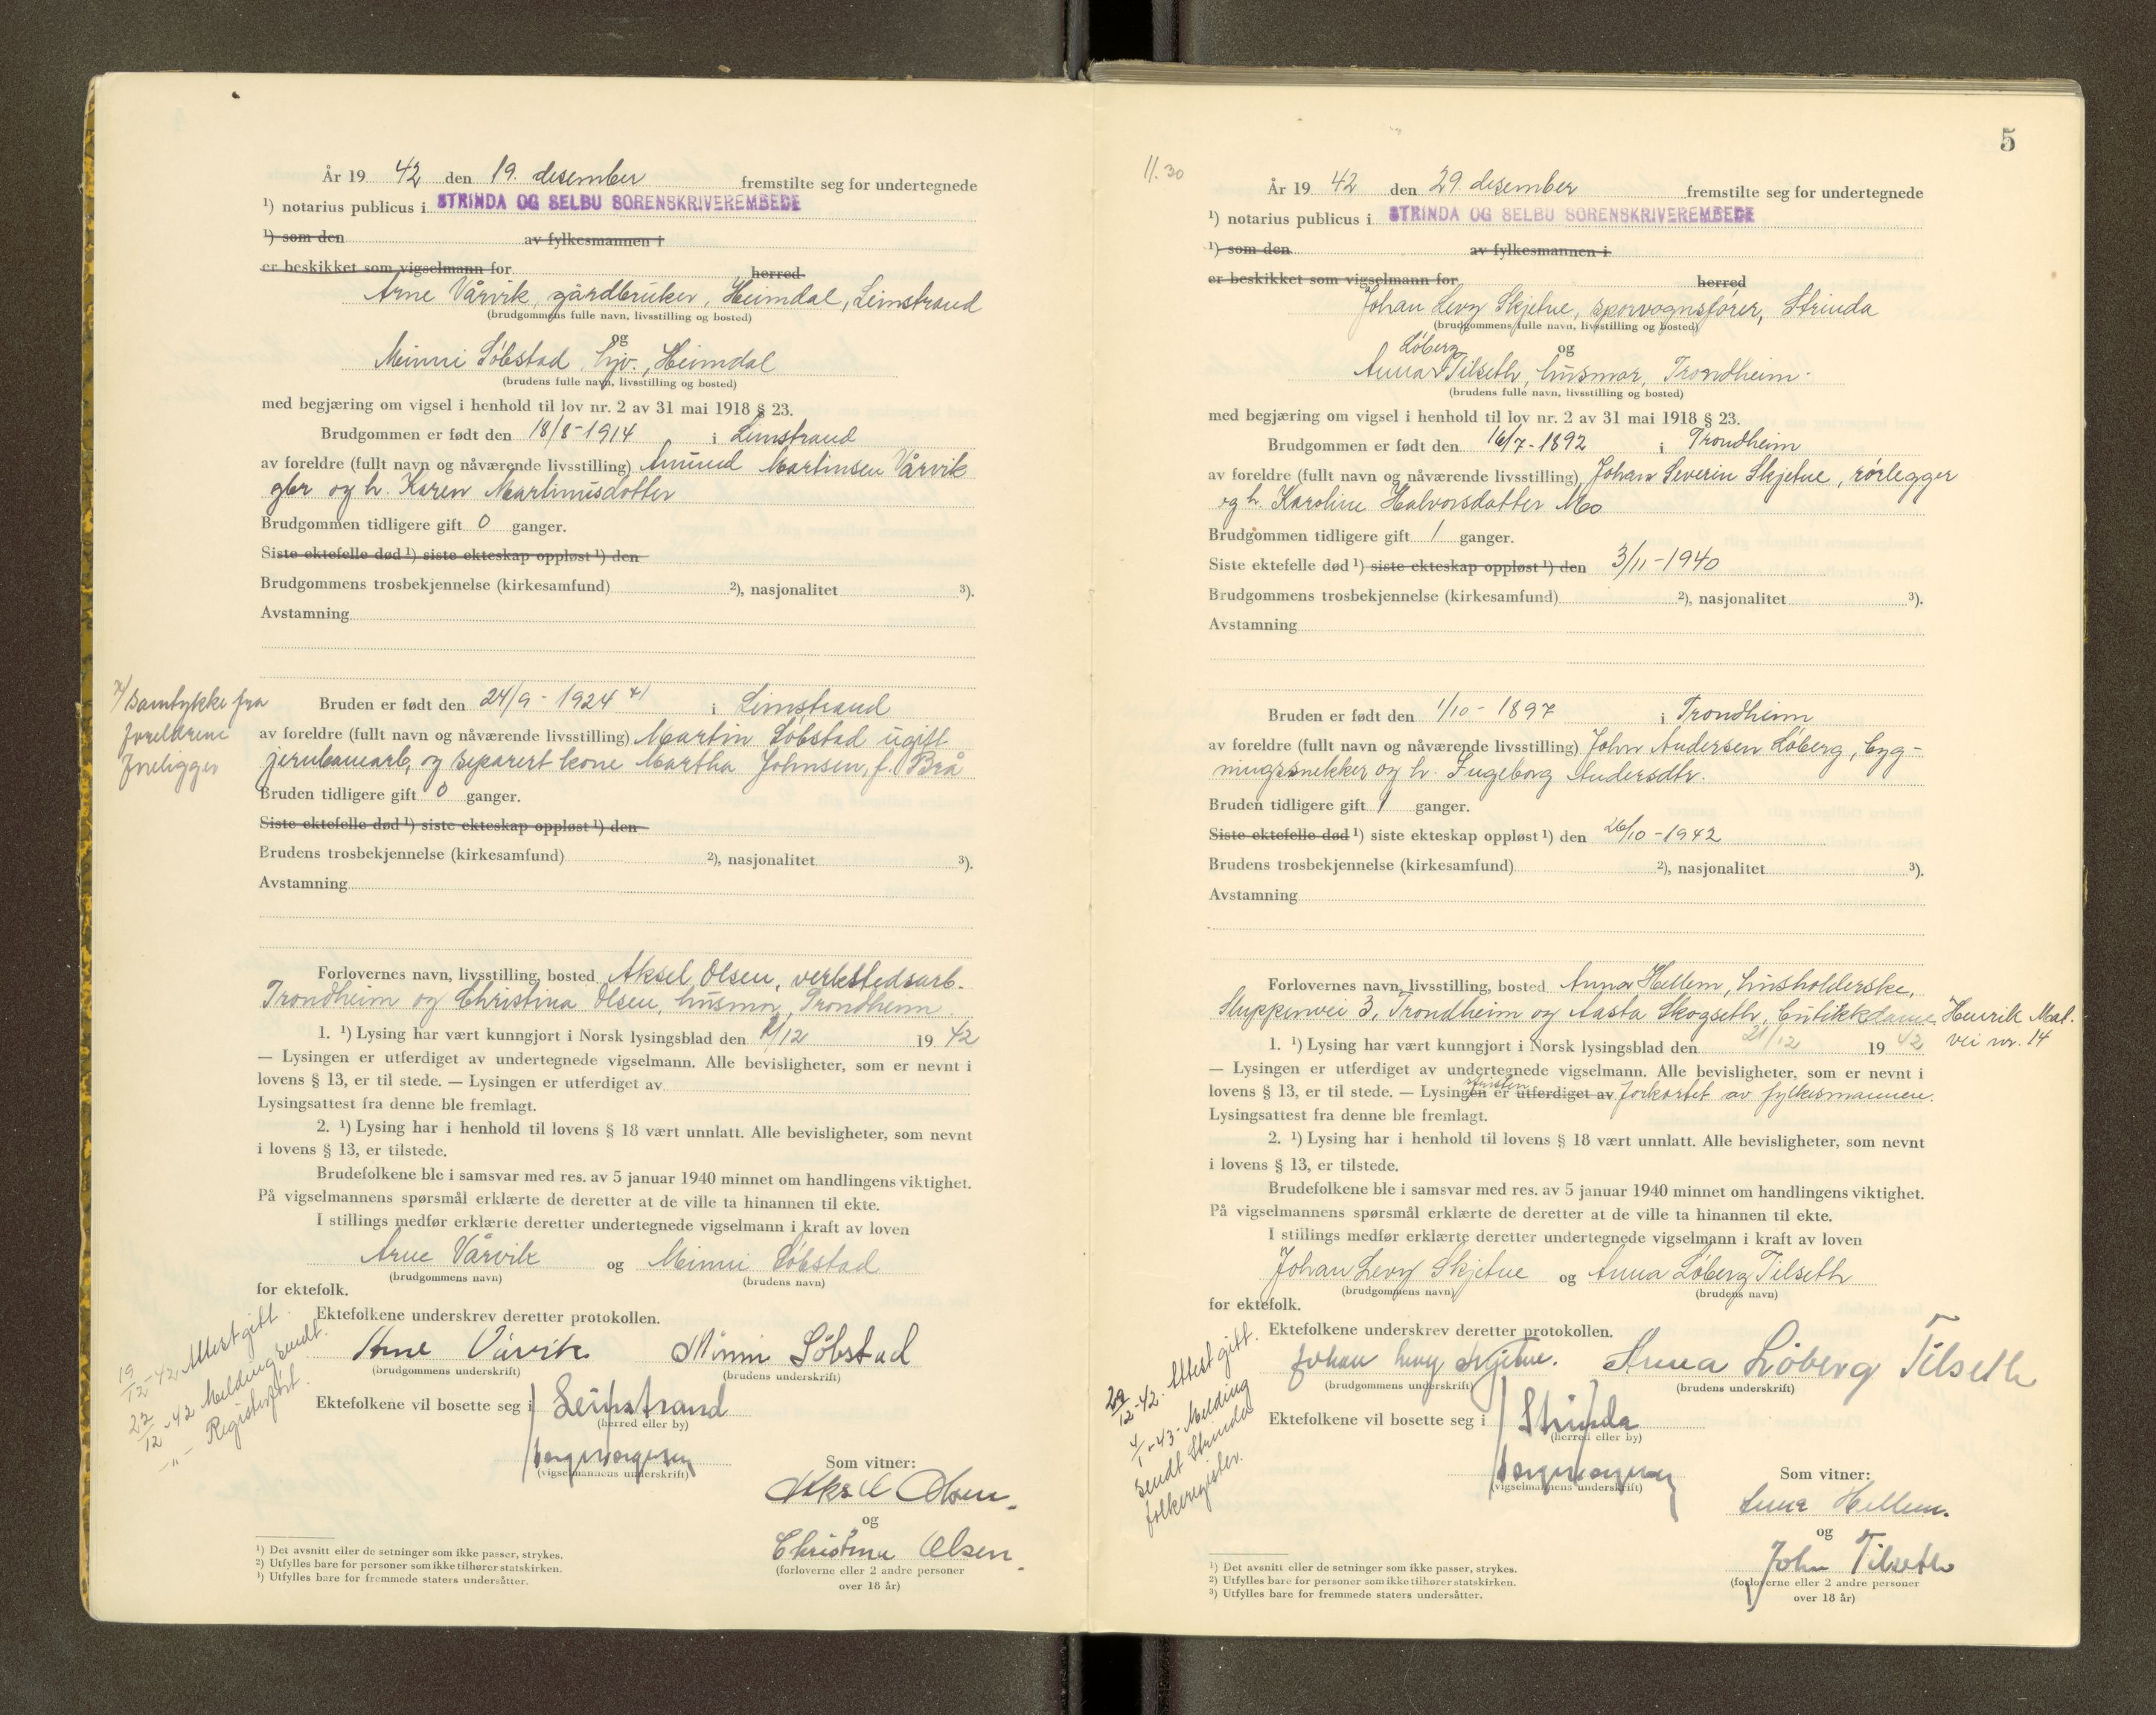 År 19 42 den 19. desember fremstilte seg for undertegnede
¹) notarius publicus i STRINDA OG SELBU SORENSKRIVEREMBEDE
¹) som den av fylkesmannen i
er beskikket som vigselmann for herred
Arne Vårvik, gårdbruker, Heimdal, Leinstrand
(brudgommens fulle navn, livsstilling og bosted)
og
Minni Søbstad, hjv., Heimdal
(brudens fulle navn, livsstilling og bosted)
med begjæring om vigsel i henhold til lov nr. 2 av 31 mai 1918 § 23.
Brudgommen er født den 18/8-1914 i Leinstrand
av foreldre (fullt navn og nåværende livsstilling) Amund Martinsen Vårvik
gbr og h. Karen Martinusdotter
Brudgommen tidligere gift 0 ganger.
Siste ektefelle død ¹) siste ekteskap oppløst ¹) den
Brudgommens trosbekjennelse (kirkesamfund) ²), nasjonalitet ³).
Avstamning
x/ Samtykke fra
foreldrene
foreligger
Bruden er født den 24/9 - 1924 x/ i Leinstrand
av foreldre (fullt navn og nåværende livsstilling) Martin Søbstad ugift
jernbanearb, og separert kone Martha Johnsen, f. Brå
Bruden tidligere gift 0 ganger.
Siste ektefelle død ¹) siste ekteskap oppløst ¹) den
Brudens trosbekjennelse (kirkesamfund) ²), nasjonalitet ³).
Avstamning
Forlovernes navn, livsstilling, bosted Aksel Olsen, verkstedsarb.
Trondheim og Christina Olsen, husmor, Trondheim
1. ¹) Lysing har vært kunngjort i Norsk lysingsblad den /12 19 42
— Lysingen er utferdiget av undertegnede vigselmann. Alle bevisligheter, som er nevnt i
lovens § 13, er til stede. — Lysingen er utferdiget av
Lysingsattest fra denne ble fremlagt.
2. ¹) Lysing har i henhold til lovens § 18 vært unnlatt. Alle bevisligheter, som nevnt
i lovens § 13, er tilstede.
Brudefolkene ble i samsvar med res. av 5 januar 1940 minnet om handlingens viktighet.
På vigselmannens spørsmål erklærte de deretter at de ville ta hinannen til ekte.
I stillings medfør erklærte deretter undertegnede vigselmann i kraft av loven
Arne Vårvik og Minni Søbstad
(brudgommens navn) (brudens navn)
for ektefolk.
Ektefolkene underskrev deretter protokollen.
Arne Vårvik Minni Søbstad
(brudgommens underskrift) (brudens underskrift)
Ektefolkene vil bosette seg i Leinstrand
(herred eller by)
19/12-42 Attest gitt.
22/12-42 Melding sendt.
-"- Registerført.
(vigselmannens underskrift)
Som vitner:
Aksel Olsen.
og
Christine Olsen.
(forloverne eller 2 andre personer
over 18 år)
¹) Det avsnitt eller de setninger som ikke passer, strykes.
²) Utfylles bare for personer som ikke tilhører statskirken.
³) Utfylles bare for fremmede staters undersåtter.
5
11.30
År 19 42 den 29. desember fremstilte seg for undertegnede
¹) notarius publicus i STRINDA OG SELBU SORENSKRIVEREMBEDE
¹) som den av fylkesmannen i
er beskikket som vigselmann for herred
Johan Levy Skjetne, sporvognsfører, Strinda
(brudgommens fulle navn, livsstilling og bosted)
og
Løberg
Anna Tilseth, husmor, Trondheim
(brudens fulle navn, livsstilling og bosted)
med begjæring om vigsel i henhold til lov nr. 2 av 31 mai 1918 § 23.
Brudgommen er født den 16/7-1892 i Trondheim
av foreldre (fullt navn og nåværende livsstilling) Johan Severin Skjetne, rørlegger
og h. Karoline Halvorsdatter Mo
Brudgommen tidligere gift 1 ganger.
Siste ektefelle død ¹) siste ekteskap oppløst ¹) den 3/11-1940
Brudgommens trosbekjennelse (kirkesamfund) ²), nasjonalitet ³).
Avstamning
Bruden er født den 1/10 - 1897 i Trondheim
av foreldre (fullt navn og nåværende livsstilling) John Andersen Løberg, byg-
ningssnekker og h. Ingeborg Andersdtr.
Bruden tidligere gift 1 ganger.
Siste ektefelle død ¹) siste ekteskap oppløst ¹) den 26/10-1942
Brudens trosbekjennelse (kirkesamfund) ²), nasjonalitet ³).
Avstamning
Forlovernes navn, livsstilling, bosted Anna Hellem, husholderske,
Sluppenvei 3, Trondheim og Aasta Skogseth, butikkdame Henrik Mat.
vei nr. 14
1. ¹) Lysing har vært kunngjort i Norsk lysingsblad den 21/12 19 42
— Lysingen er utferdiget av undertegnede vigselmann. Alle bevisligheter, som er nevnt i
lovens § 13, er til stede. — Lysingen er utferdiget av forkortet av fylkesmannen.
Lysingsattest fra denne ble fremlagt.
2. ¹) Lysing har i henhold til lovens § 18 vært unnlatt. Alle bevisligheter, som nevnt
i lovens § 13, er tilstede.
Brudefolkene ble i samsvar med res. av 5 januar 1940 minnet om handlingens viktighet.
På vigselmannens spørsmål erklærte de deretter at de ville ta hinannen til ekte.
I stillings medfør erklærte deretter undertegnede vigselmann i kraft av loven
Johan Levy Skjetne og Anna Løberg Tilseth
(brudgommens navn) (brudens navn)
for ektefolk.
Ektefolkene underskrev deretter protokollen.
Johan Levy Skjetne. Anna Løberg Tilseth
(brudgommens underskrift) (brudens underskrift)
Ektefolkene vil bosette seg i Strinda
(herred eller by)
29/12-42. Attest gitt.
4/1-43- Melding
sendt Strinda
folkeregister.
(vigselmannens underskrift)
Som vitner:
Anna Hellem.
og
John Tilseth
(forloverne eller 2 andre personer
over 18 år)
¹) Det avsnitt eller de setninger som ikke passer, strykes.
²) Utfylles bare for personer som ikke tilhører statskirken.
³) Utfylles bare for fremmede staters undersåtter.